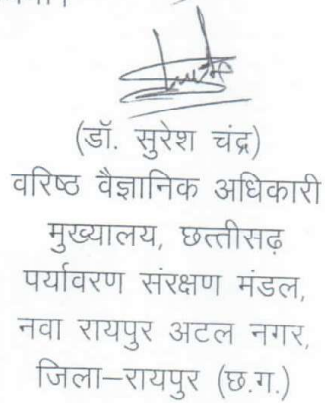 (डॉ. सुरेश चंद्र)
वरिष्ठ वैज्ञानिक अधिकारी
मुख्यालय, छत्तीसढ़
पर्यावरण संरक्षण मंडल,
नवा रायपुर अटल नगर,
जिला–रायपुर (छ.ग.)